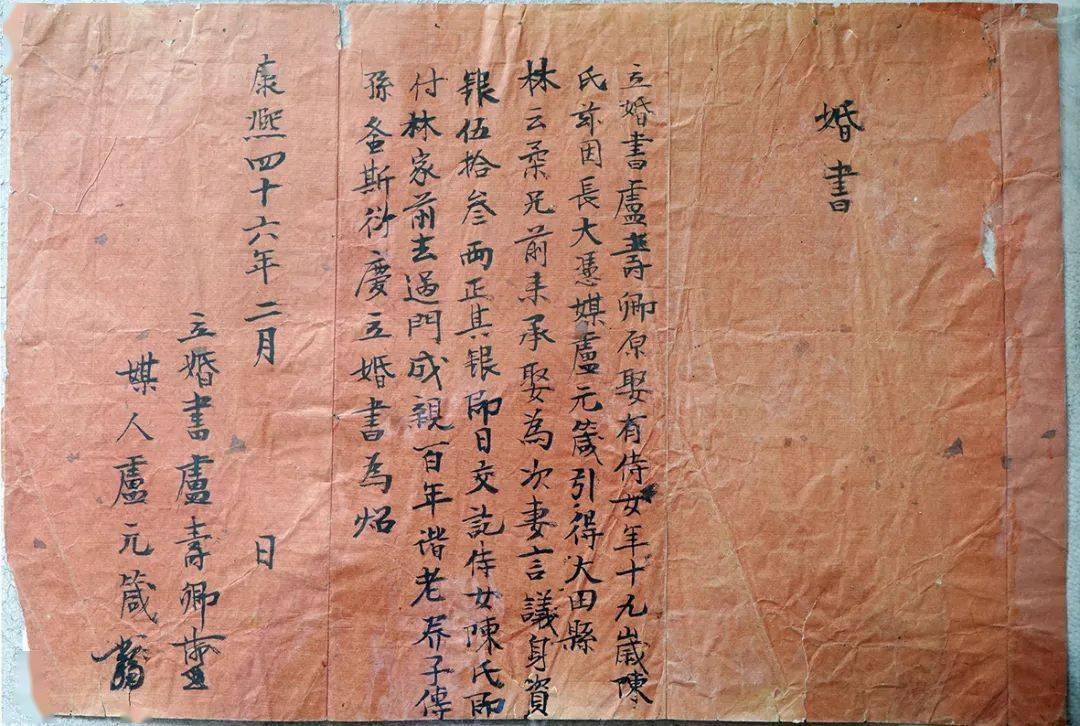 婚書
立婚書盧壽卿原娶有侍女年十九歲陳
氏茲因長大憑媒盧元箴引得大田縣
林云柔兄前来承娶為次妻言議身資
銀伍拾叁両正其銀即日交訖侍女陳氏即
付林家前去過門成親百年谐老养子傳
孫螽斯衍慶立婚書為炤
康熙四十六年二月 日
立婚書盧壽卿
媒人盧元箴